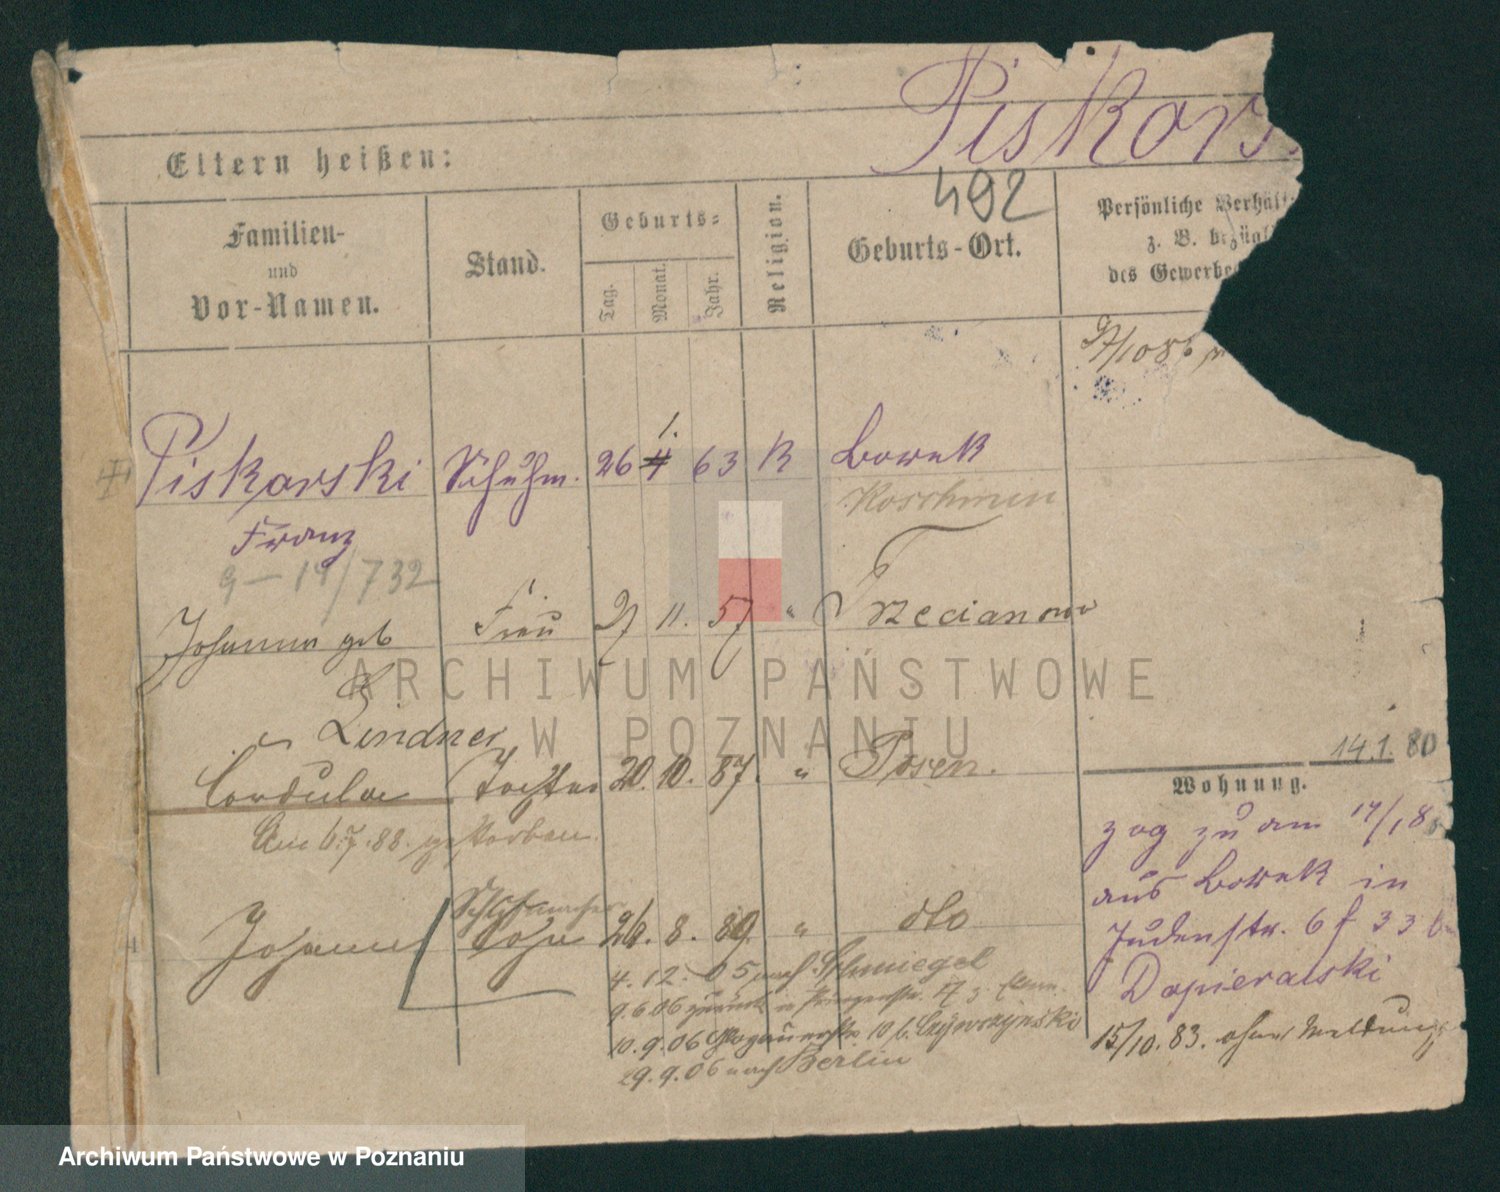 Piskors
492
Eltern heißen:
Familien-
und
Vor-Namen.
Stand.
Geburts-
Tag.
Monat.
Jahr.
Religion.
Geburts-Ort.
Persönliche Verhält
z. B. bezügl
des Gewerbe
Piskorski Schuhm. 26 4 1. 63 K Borek
Koschmin
Franz
9 — 14/732
Johanna geb Frau 27 11. 57 " Trzecianowo
Lindner
Cordula Tochter 20. 10. 87. " Posen.
Am 6.7.88. gestorben.
Schuhmacher
Johann Sohn 26. 8. 89. " dto
4. 12. 05 nach Schmiegel
9.6.06 zurück
10.9.06
29.9.06 nach Berlin
14.1. 80
Wohnung.
zog zu am 17/1 8
aus Borek in
Judenstr. 6 f 33 b
Dopieralski
15/10.83. ohne Meldung
ARCHIWUM PAŃSTWOWE
W POZNANIU
Archiwum Państwowe w Poznaniu